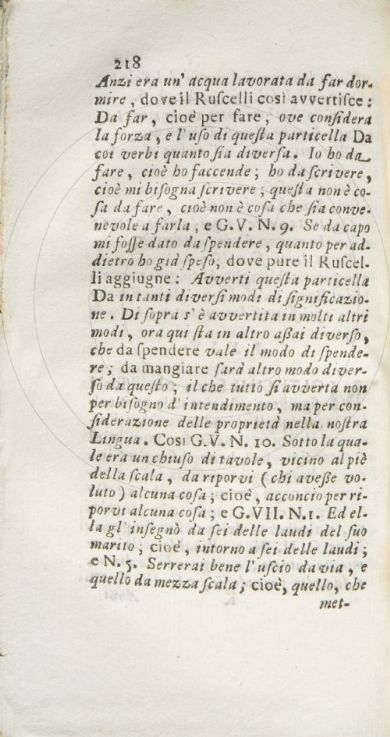 218
Anzi era un' acqua lavorata da far dor-
mire, dove il Ruſcelli così avvertiſce:
Da far, cioè per fare, ove conſidera
la forza, e l' uſo di queſta particella Da
coi verbi quanto ſia diverſa. Io ho da
fare, cioè ho faccende; ho da ſcrivere,
cioè mi biſogna ſcrivere; queſta non è co-
ſa da fare, cioè non è coſa che ſia conve-
nevole a farla; e G. V. N. 9. Se da capo
mi foſſe dato da ſpendere, quanto per ad-
dietro ho già ſpeſo; dove pure il Ruſcel-
li aggiugne: Avverti queſta particella
Da in tanti diverſi modi di ſignificazio-
ne. Di ſopra s' è avvertita in molti altri
modi, ora qui ſta in altro aßai diverſo,
che da ſpendere vale il modo di ſpende-
re; da mangiare ſarà altro modo diver-
ſo da queſto; il che tutto ſi avverta non
per biſogno d' intendimento, ma per con-
ſiderazione delle proprietà nella noſtra
Lingua. Così G. V. N. 10. Sotto la qua-
le era un chiuſo di tavole, vicino al piè
della ſcala, da riporvi (chi aveße vo-
luto) alcuna coſa; cioè, acconcio per ri-
porvi alcuna coſa; e G. VII. N. 1. Ed el-
la gl' inſegnò da ſei delle laudi del ſuo
marito; cioè, intorno a ſei delle laudi;
e N. 5. Serrerai bene l' uſcio da via, e
quello da mezza ſcala; cioè, quello, che
met-